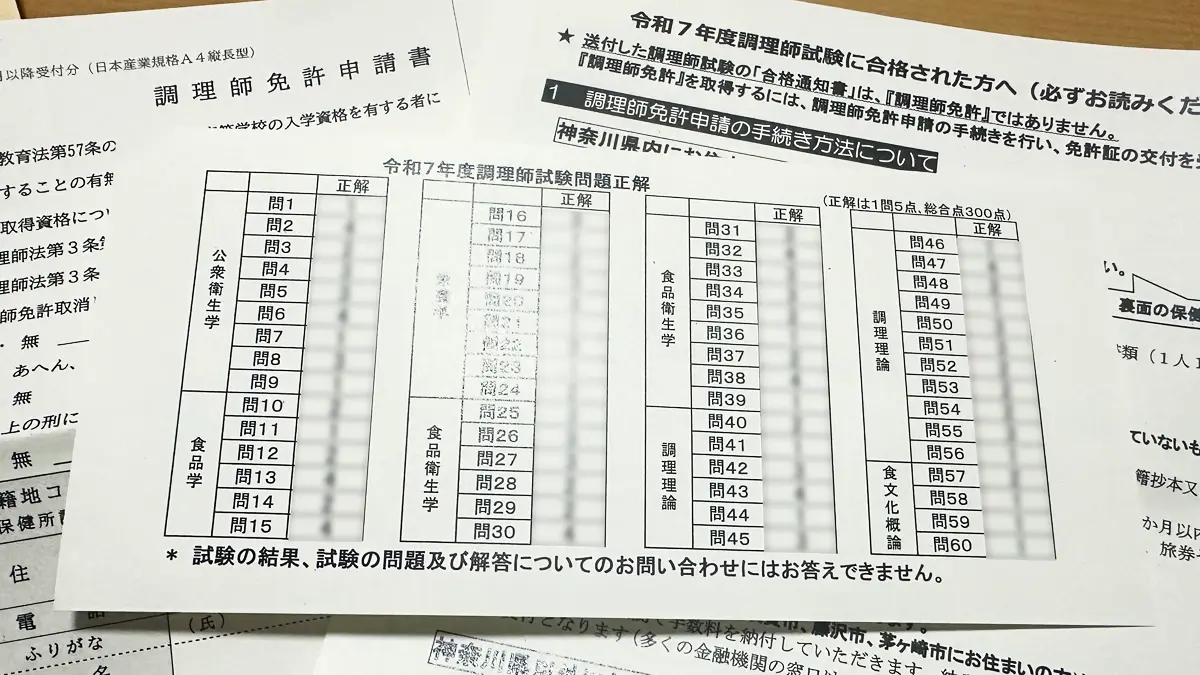 月以降受付分（日本産業規格Ａ４縦長型）
調理師免許申請書
学校の入学資格を有する者に
教育法第57条の
することの有無
取得資格につ
理師法第３条
理師法第３条
師免許取消
・無
あへん、
無
上の刑に
無
籍地コ
保健所
住
電話
ふりがな
名
（氏）
令和７年度調理師試験に合格された方へ（必ずお読みくだ
★ 送付した調理師試験の「合格通知書」は、『調理師免許』ではありません。
『調理師免許』を取得するには、調理師免許申請の手続きを行い、免許証の交付を
1 調理師免許申請の手続き方法について
神奈川県内にお住
令和７年度調理師試験問題正解
（正解は１問５点、総合点300点）
正解
公衆衛生学
問1
問2
問3
問4
問5
問6
問7
問8
問9
食品学
問10
問11
問12
問13
問14
問15
正解
栄養学
問16
問17
問18
問19
問20
問21
問22
問23
問24
食品衛生学
問25
問26
問27
問28
問29
問30
正解
食品衛生学
問31
問32
問33
問34
問35
問36
問37
問38
問39
調理理論
問40
問41
問42
問43
問44
問45
正解
調理理論
問46
問47
問48
問49
問50
問51
問52
問53
問54
問55
問56
食文化概論
問57
問58
問59
問60
＊ 試験の結果、試験の問題及び解答についてのお問い合わせにはお答えできません。
い。
裏面の保健
類（１人１
ていないも
籍抄本又
か月以内
旅券
市、藤沢市、茅ヶ崎市にお住まいの方は
手数料を納付していただきます。
となります（多くの金融機関の窓口
神奈川県